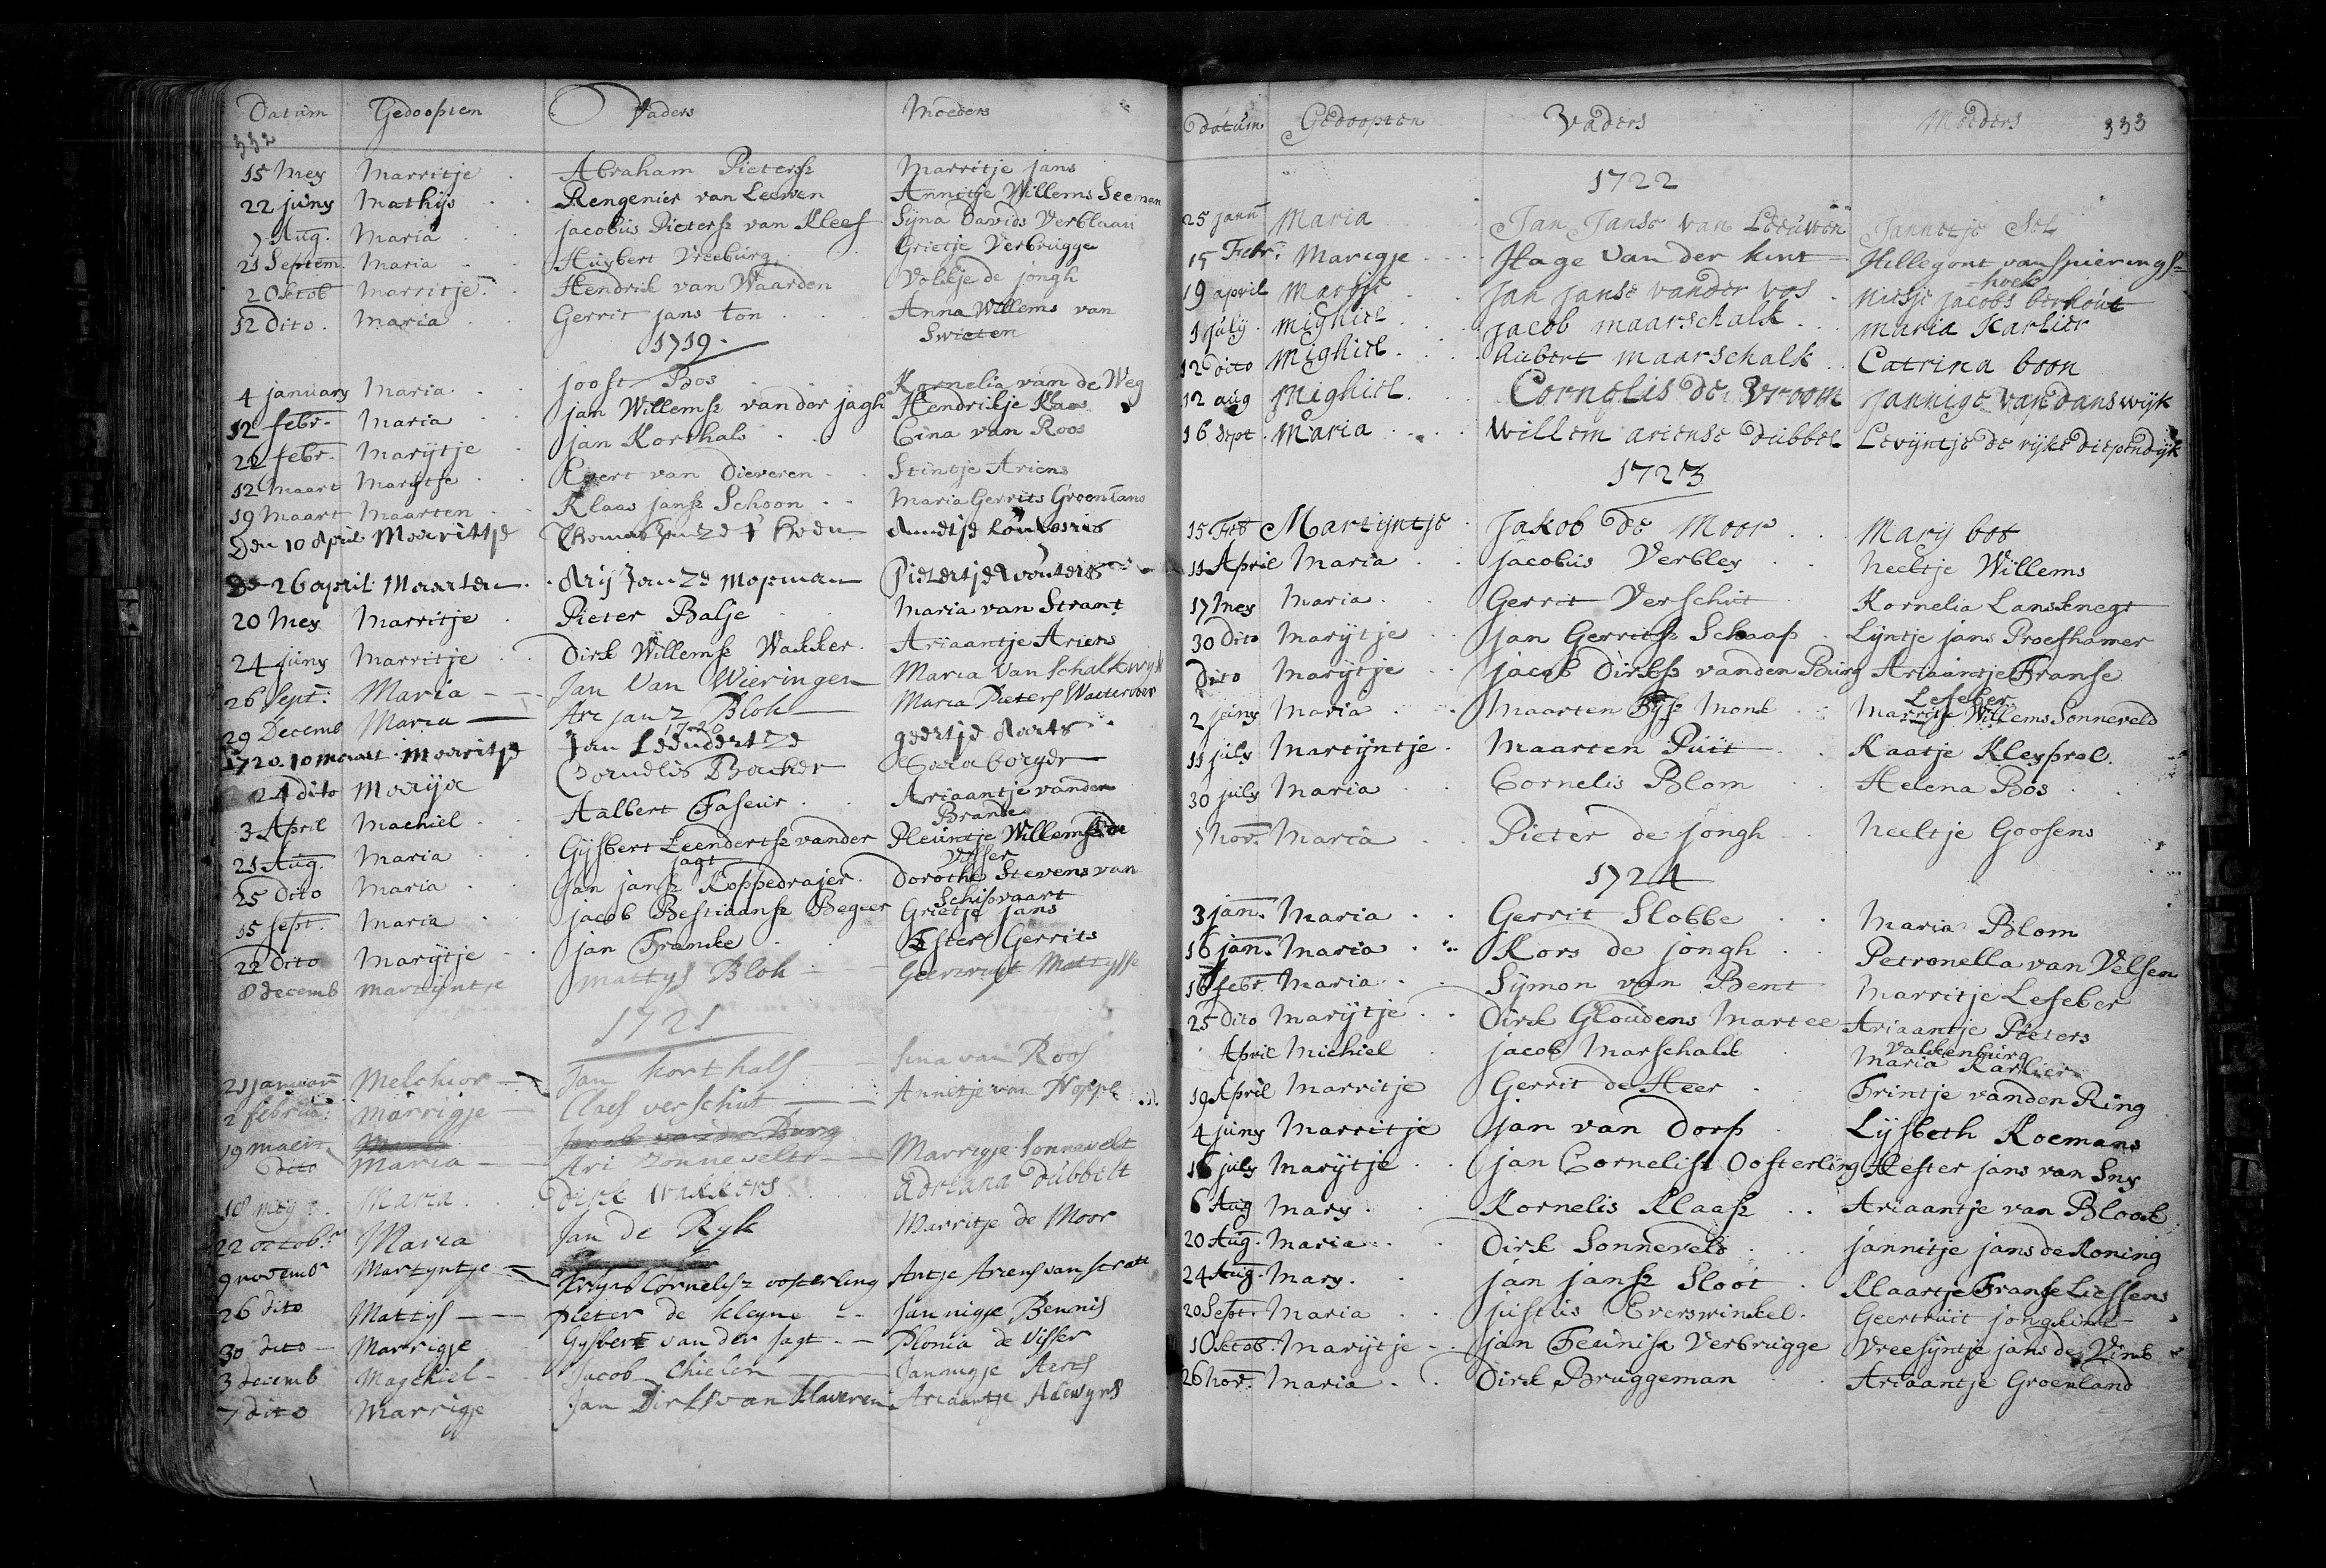 Datum Gedoopten Vaders Moeders
332
15 Mey Marritje Abraham Pietersz Marritje jans
22 juny Mathijs Rengenier van Leewen Annitje Willems Seeman
7 Aug. Maria jacobus Pietersz van Kleef Sijna Davids Verblaau
21 Septem. Maria Huybert Vreeburg Grietje Verbrugge
2 Octob Marritje Hendrik van Waarden Volkje de jongh
12 dito. Maria Gerrit jans ton Anna Willems van
Swieten
1719.
4 january Maria joost Bos Kornelia van de Weg
12 febr. Maria jan Willemsz van der jagh Hendrikje Klaas
22 febr. Marijtje jan Korthals Cina van Roos
12 maart Marijtje Evert van Dieveren Stintje Ariens
19 Maart Maarten Klaas jansz Schoon Maria Gerrits Groenland
Den 10 April Maarittje
De 26 april Maarten Arij Janze Mopman Pietertje Wouters
20 Mey Marritje Pieter Balje Maria van Strant
24 juny Marritje Dirk Willemse Wakker Ariaantje Ariens
26 Sept: Maria Jan Van Wieringen Maria Van Schalkwyk
29 Decemb Maria Ari janz Blok Maria Pieters
1720
1720. 10 maart Maaritje Jan Leendertze geertje Aarts
24 dito Maarija Cornelis Backer Sara borger
3 April Machiel Aalbert Faseur Ariaantje vanden
Brande
21 Aug. Maria Gijsbert Leendertse vander Pleuntje Willemsz de
jagt Visser
25 Dito Maria jan jansz Koppedrajer Dorothe Stevens van
Schipvaart
15 Sept. Maria jacob Bestiaansz Begeer Grietje jans
22 Dito Marijtje jan Franke Ester Gerrits
8 decemb martijntje mattijs Blok Geertruijt Mattysse
1721
21 januari Melchior Jan korthals sina van Roos
2 februa: marrigje Claes verschut Annitje van Noppe
19 maert Maria Jacob vander Burg
dito Maria Ari Zonnevelt Marrigje Sonnevelt
18 mey Maria Dirk Wakkers Adriana Dubbelt
22 octobr Maria Jan de Ryk Marritje de Moor
9 novembr Martyntje Krijns Cornelisz oosterling Antje Ariens van Strate
26 dito Mattijs pieter de kleyne Jannigje Bennis
30 dito Marrigje Gijsbert van der Jagt Plonia de Visser
3 decemb Magchiel Jacob Chielen Jannigje Aerts
7 dito Marrigje Jan Dirks van Klaveren Ariaantje Alewyns
datum Gedoopten Vaders Moeders 333
1722
25 jann Maria Jan Janse van Leeuwen Jannetje Sol
15 Febr: Marigje Hage van der kint Hillegont van Spierings=
hoek
19 april Marije Jan Janse vander vos Niesje jacobs berkout
1 july mighiel jacob maarschalk maria Karlier
12 dito Mighiel hubert maarschalk Catrina boon
12 aug Mighiel Cornelis de Vroom Jannige van danswijk
16 sept Maria Willem ariense dubbel Levijntje de rijke diependijk
1723
15 Feb Martijntje Jakob de Moor Marij bos
11 April Maria jacobus Verbley Neeltje Willems
17 Mey Maria Gerrit Verschut Kornelia Lansknegt
30 Dito Marijtje jan Gerritsz Schaap Lijntje jans Proefhamer
Dito Marijtje jacob Dirksz vanden Burg Ariaantje Franse
Lefeber
2 juny Maria Maarten Tijsz Monk Marritje Willems Sonneveld
11 july Martijntje Maarten Puit Kaatje Kleyprol
30 july Maria Cornelis Blom Helena Bos
7 Nov. Maria Pieter de jongh Neeltje Goosens
1724
3 jan. Maria Gerrit Slobbe Maria Blom
16 jan. Maria Kors de jongh Petronella van Velsen
16 febr. Maria Sijmon van Bent Marritje Lefeber
25 Dito Marijtje Dirk Gloudens Martee Ariaantje Pieters
Valkenburg
April Michiel jacob Marschalk Maria Karlier
19 April Marritje Gerrit de Heer Trintje vanden Ring
4 juny Marritje jan van Dorp Lijsbeth Koemans
16 july Marijtje jan Cornelisz Oosterling Hester jans van Sny
6 Aug Mary Kornelis Klaasz Ariaantje van Blook
20 Aug. Maria Dirk Sonneveld jannitje jans de Koning
24 Aug. Mary jan jansz Sloot Klaartje Franse Liessens
20 Sept. Maria justus Everswinkel Geertruit jongkint
1 Octob. Marijtje jan Teunisz Verbrugge Vreesijntje jans de Vink
26 Nov. Maria Dirk Bruggeman Ariaantje Groenland